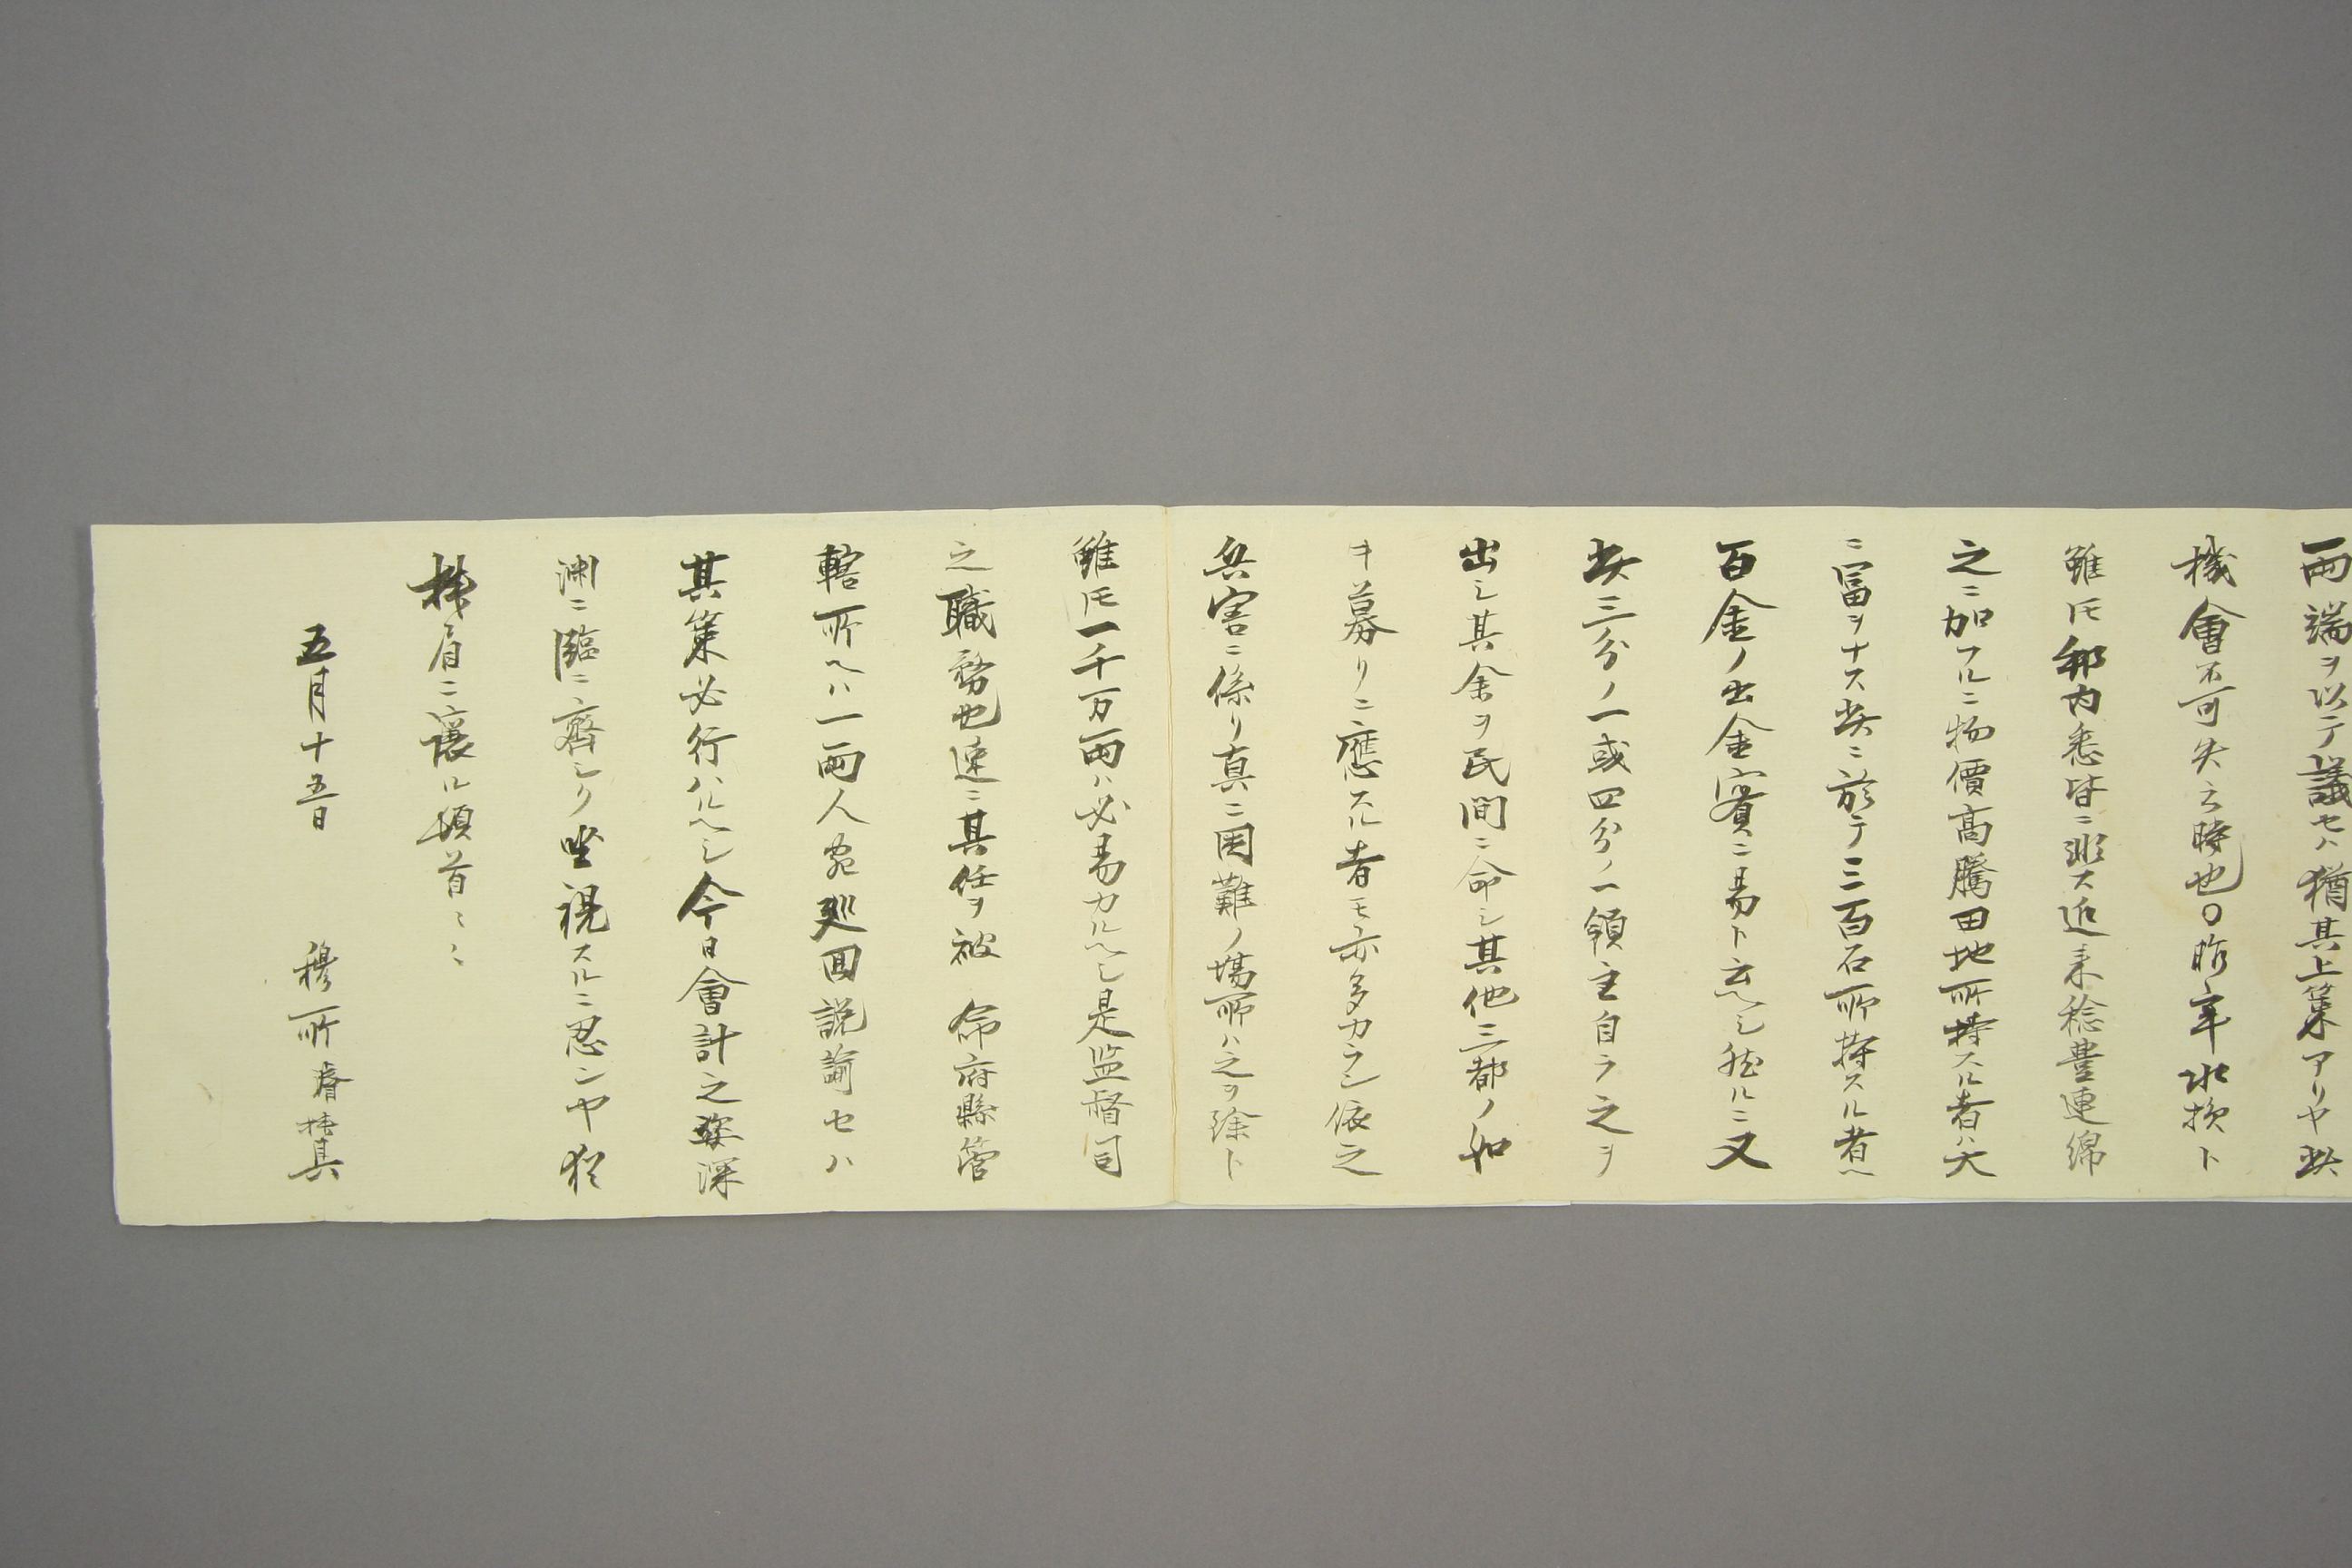 両端ヲ以テ議セハ猶其上策アリヤ此
機會不可失之時也〇昨年水損ト
雖𪜈邦内悉皆ニ非ス近来稔豊連綿
之ニ加フルニ物價高騰田地所持スル者ハ大
ニ富ヲナス此ニ於テ三百石所持スル者ヘ
百金ノ出金實ニ易ト云ヘシ然ルニ又
此三分ノ一或四分ノ一領主自ラ之ヲ
出シ其余ヲ民間ニ命シ其他三都ノ如
キ募リニ應スル者モ亦多カラン依之
兵害ニ係リ真ニ困難ノ場所ハ之ヲ除ト
雖𪜈一千万両ハ必易カルヘシ是監督司
之職務也速ニ其任ヲ被 命府縣管
轄所ヘハ一両人宛廻回説諭セハ
其策必行ハルヘシ今日會計之姿深
渊ニ臨ニ齊シク坐視スルニ忍ンヤ猶
拝眉ニ譲ル頓首ミミ
五月十五日 穆所